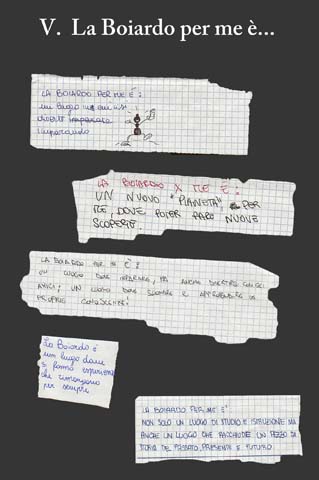 V. La Boiardo per me è...
LA BOIARDO PER ME È:
un luogo in cui ci si
diverte imparando
LA BOIARDO X ME È:
UN NUOVO "PIANETA" PER
ME, DOVE POTER FARE NUOVE
SCOPERTE.
LA BOIARDO PER ME È
UN LUOGO DOVE IMPARARE, MA ANCHE DIVERTIRSI CON GLI
AMICI; UN LUOGO DOVE SCOPRIRE E APPROFONDIRE LE
PROPRIE CONOSCENZE!
La Boiardo è
un luogo dove
si fanno esperienze
che rimangono
per sempre
LA BOIARDO PER ME È
NON SOLO UN LUOGO DI STUDIO E ISTRUZIONE MA
ANCHE UN LUOGO CHE RACCHIUDE UN PEZZO DI
STORIA DEL PASSATO, PRESENTE E FUTURO